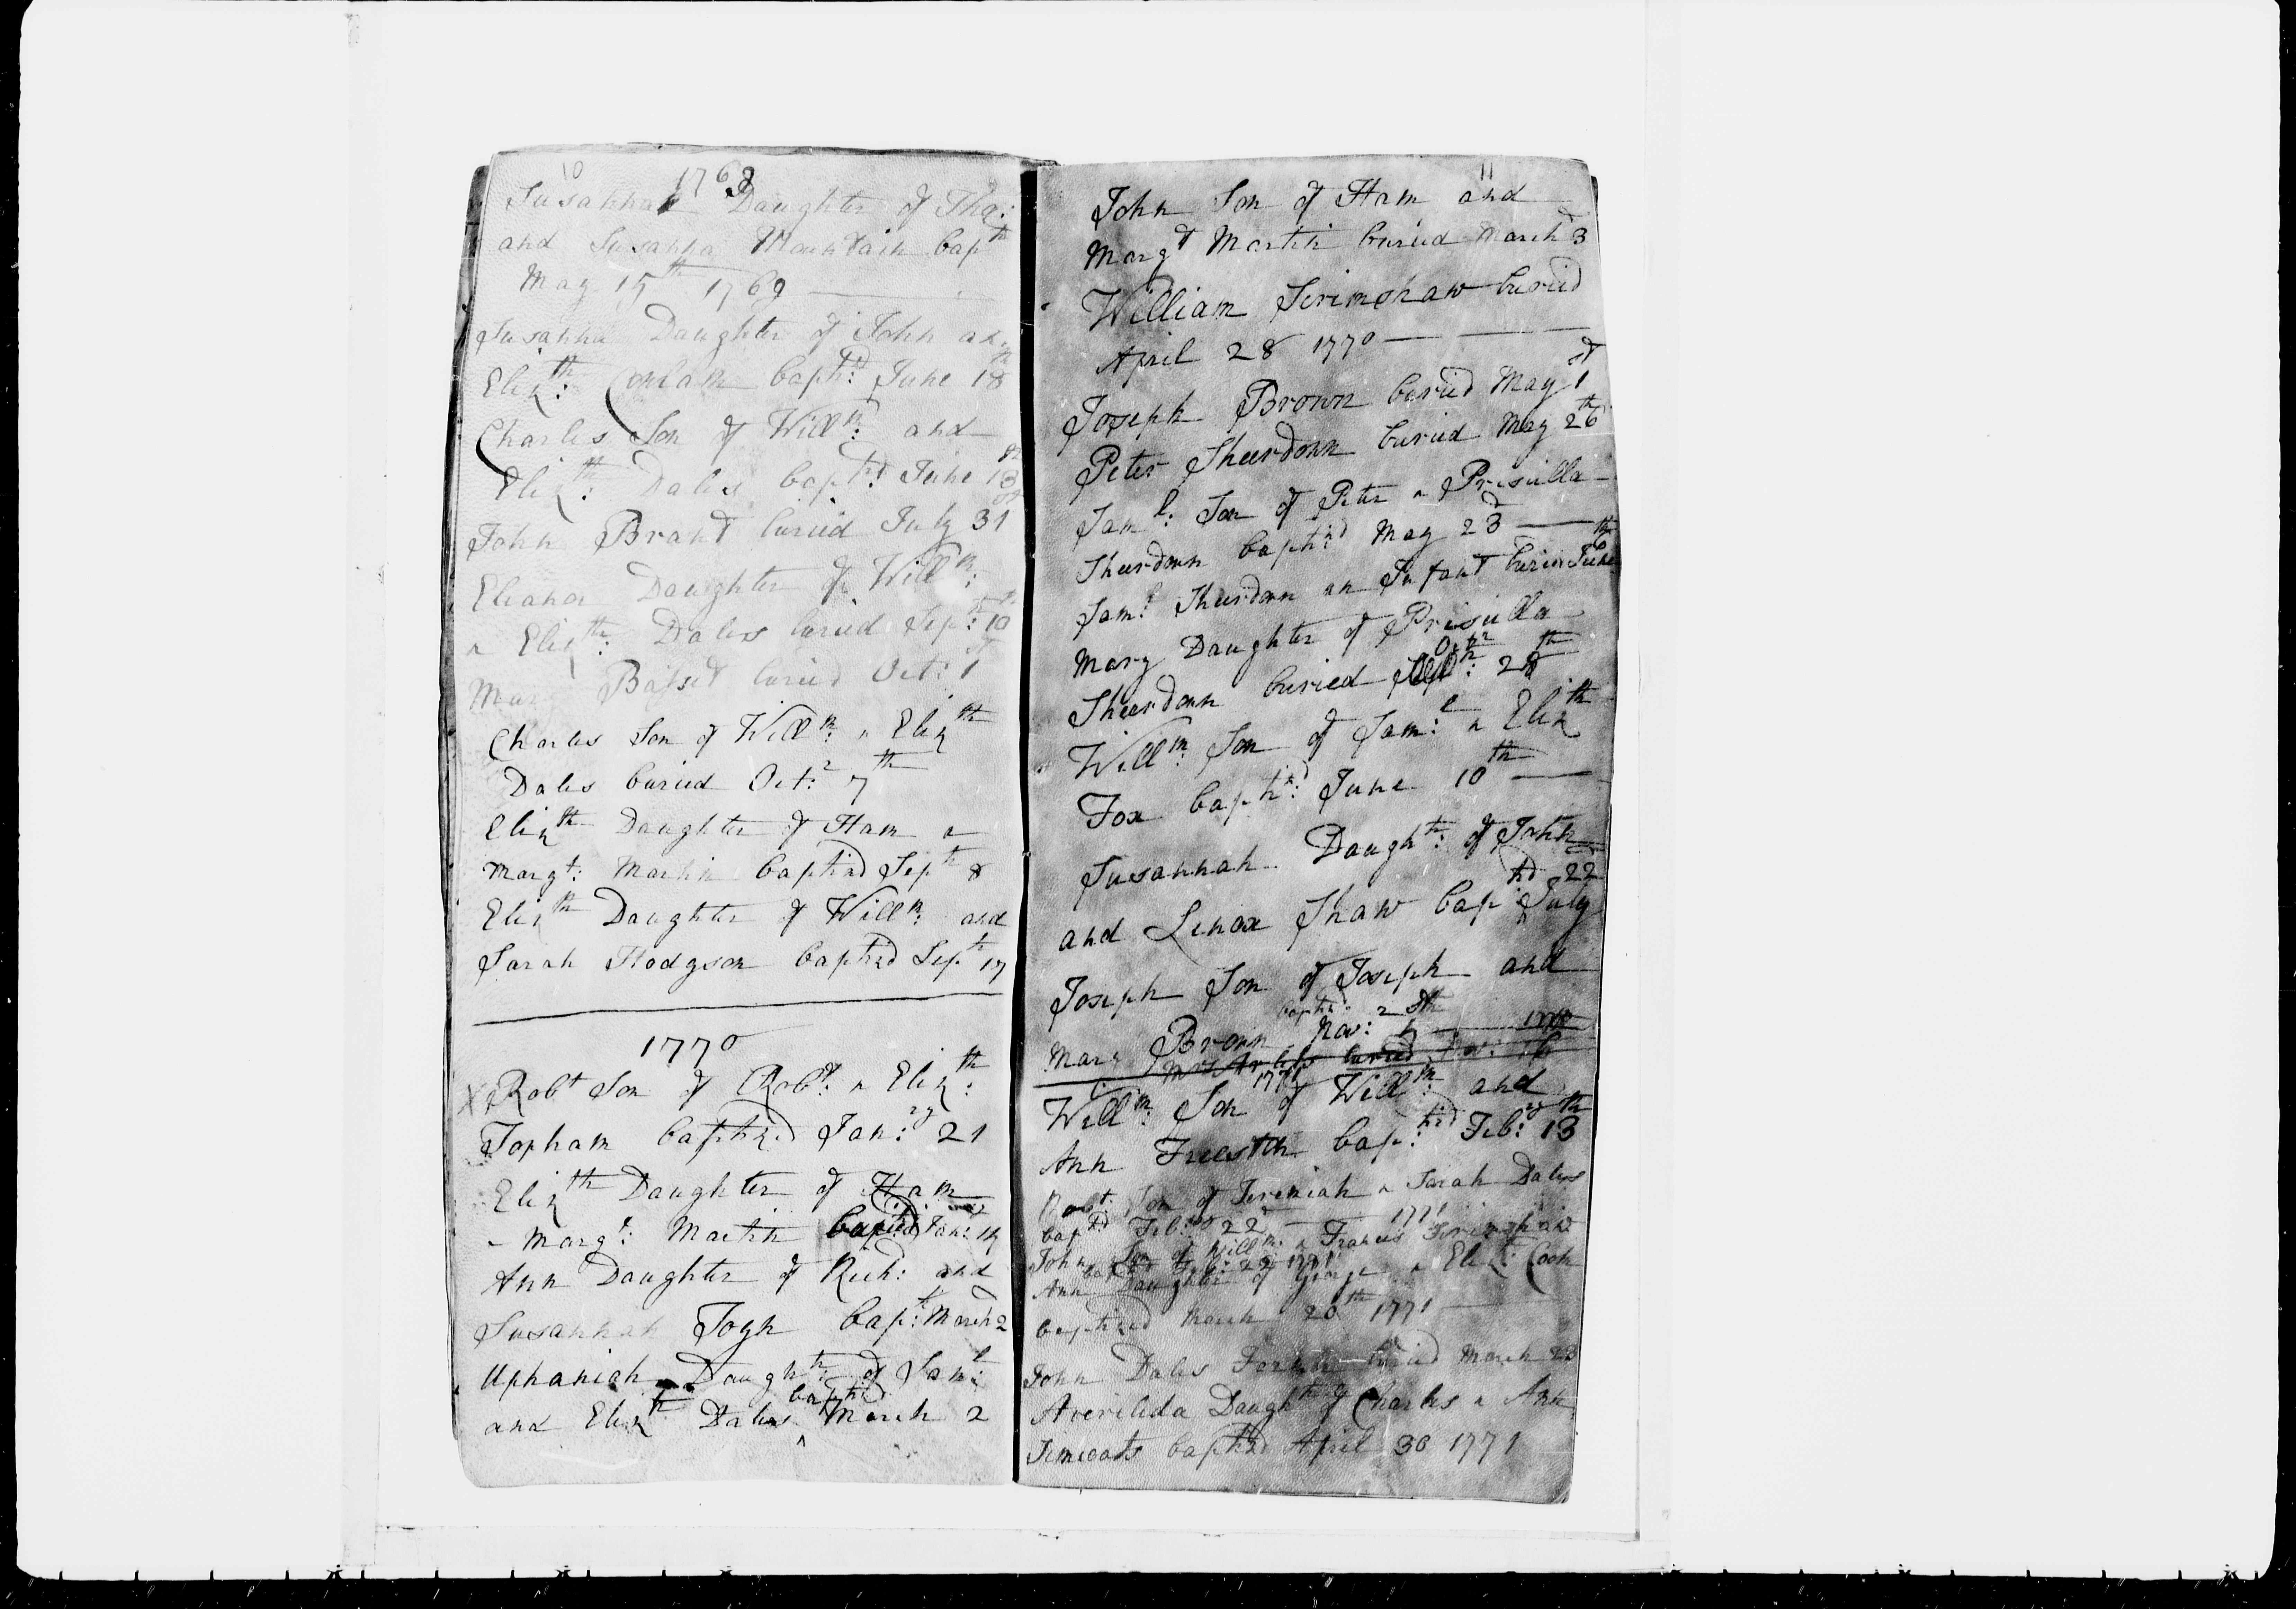 10
1769
Susannah Daughter of Tho:
and Susanna Mountain bapth
May 15th 1769
Susanna Daughter of John an
Elizth: Conlam baptzd: June 18th
Charles Son of Willm: and
Elizth: Dales baptzd June 18th
John Brant buried July 31st
Eleanor Daughter of Willm:
& Elizth: Dales buried Sept: 10th
Mary Basset buried Oct: 1st
Charles Son of Willm: & Elizth
Dales buried Octr: 7th
Elizth Daughter of Ham &
Margt: Martin baptizd Sept 8
Elizth Daughter of Willm: and
Sarah Hodgson baptizd Sept 17
1770
X Robt Son of Robt: & Elizth:
Topham baptized Janry: 21
Elizth Daughter of Ham
& Margt: Martin buried Janry: 14
Ann Daughter of Rich: and
Susannah Togn bapt: March 2
Uphaniah Daughtr: of Saml:
and Elizth Dales baptizd March 2
11
John Son of Ham and
Margt Martin buried March 3d
William Scrimshaw buried
April 28 1770
Joseph Brown buried May 1st
Peter Sheerdown buried May 26th
Saml: Son of Peter & Priscilla
Sheerdown baptzd May 23d
Saml Sheerdown an Infant buried June 6th
Mary Daughter of Priscilla
Sheerdown buried Octr 28th
Willm: Son of Saml: & Elizth
Fox baptzd: June 10th
Susannah Daughtr: of John
and Lenox Shaw baptzd July 22
Joseph Son of Joseph and
Mary Brown baptzd: Nov: 2 1770
buried Nov: 16
1771
Willm: Son of Willm: and
Ann Freeston baptzd: Febry: 13th
Robt: Son of Jeremiah & Sarah Dales
baptzd Febry 22d 1771
John Son of Willm: & Francis Scrimshaw
baptzd Feb: 22 1771
Ann Daughter of George & Elizt: Cook
baptized March 20th 1771
John Dales Farmer buried March 23
Averilda Daughtr of Charles & Ann
Simcoats baptzd April 30 1771